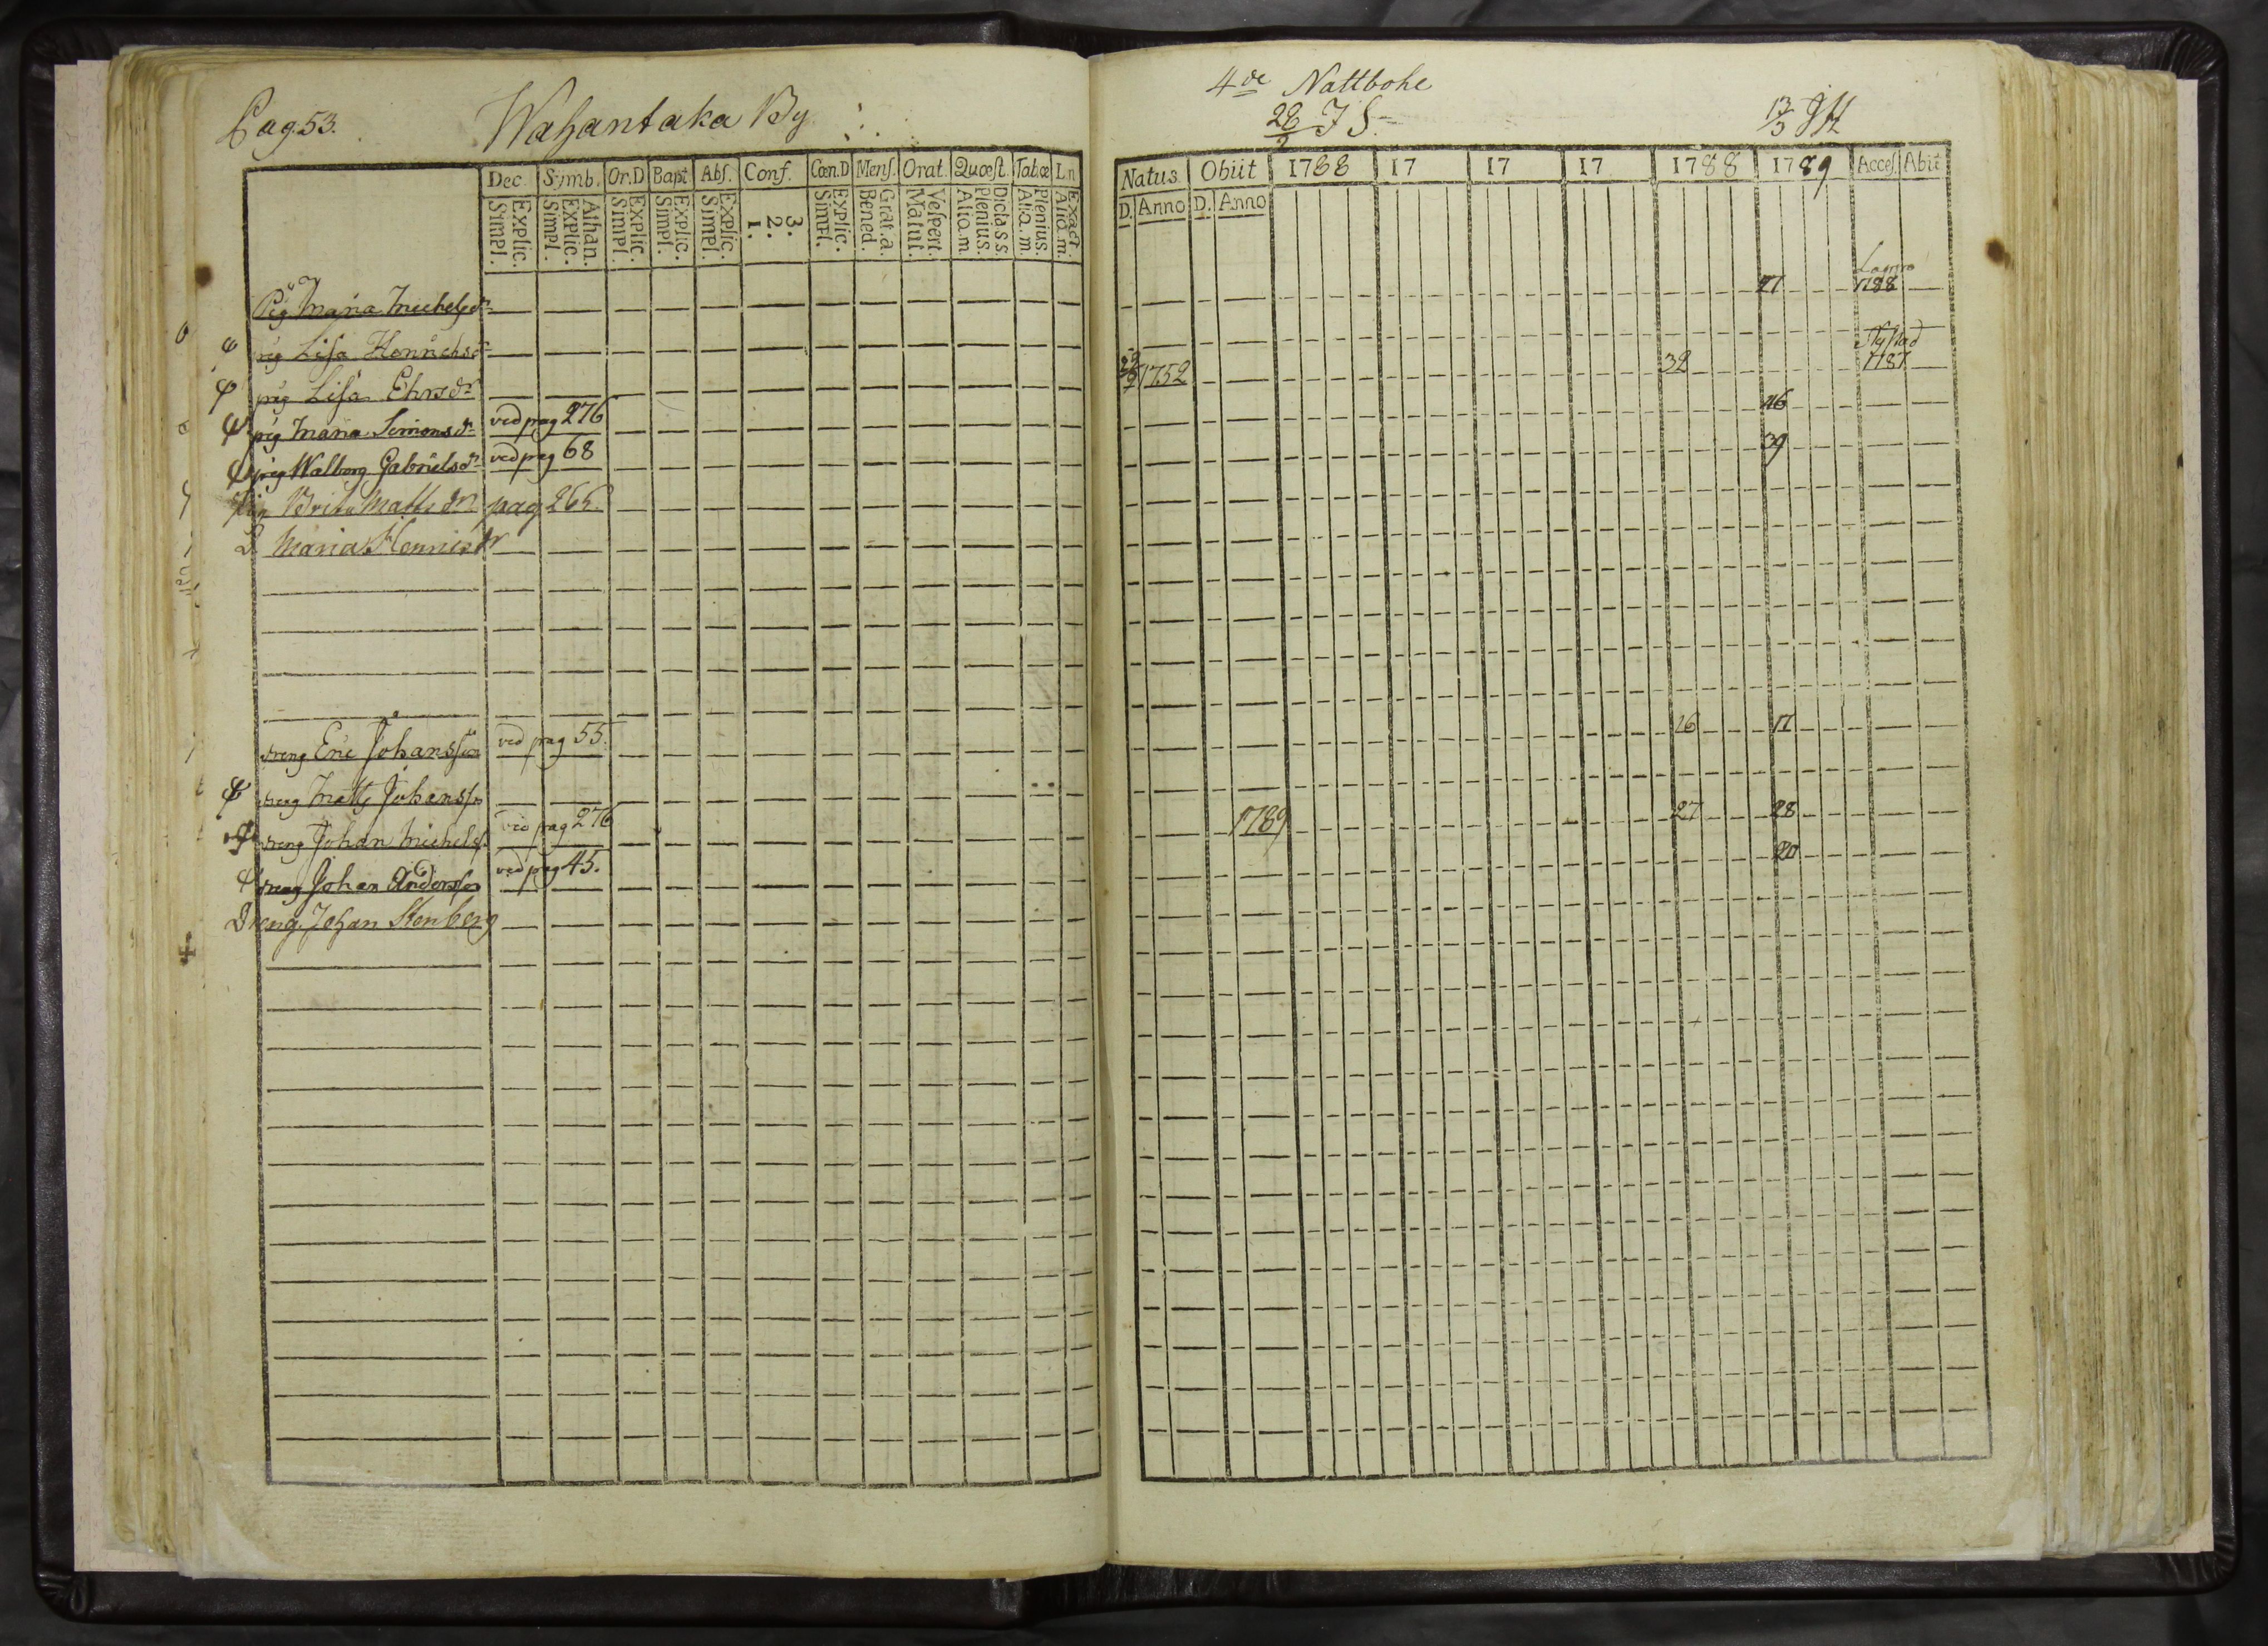 Pag. 53. Wahantaka By
Dec. Symb. Or.D Bapt. Abs. Conf. Cœn.D Mens. Orat. Quœst. Tab.œ L.n
Explic. Simpl. Athan. Explic. Simpl. Explic. Simpl. Explic. Simpl. Explic. Simpl. 3. 2. 1. Explic. Simpl. Grat. a. Bened. Vespert. Matut. Dicta s s. Plenius. Aliq. m. Plenius. Aliq. m. Exact. Aliq. m.
Pig Maria Michelsdr
pig Lisa Henrichsdr
pig Lisa Ehrsdr
pig Maria Simonsdr ved pag 276
pig Walborg Gabrielsdr ved pag 68
Pig Brita Mattsdr pag 265.
D. Maria Henricsdr
dreng Eric Johansson ved pag 55.
dreng Matts Johansson
dreng Johan Michelss. ved pag 276
dreng Johan Andersson ved pag 45.
Dreng. Johan Stenberg
4de Nattbohe
28/2 J S. 13/3 JH
Natus. Obiit 1788 17 17 17 1788 1789 Acces. Abiit
D. Anno D. Anno
11 1788
Nystad
1752 32 1787
16
39
16 11
1789 27 28
20